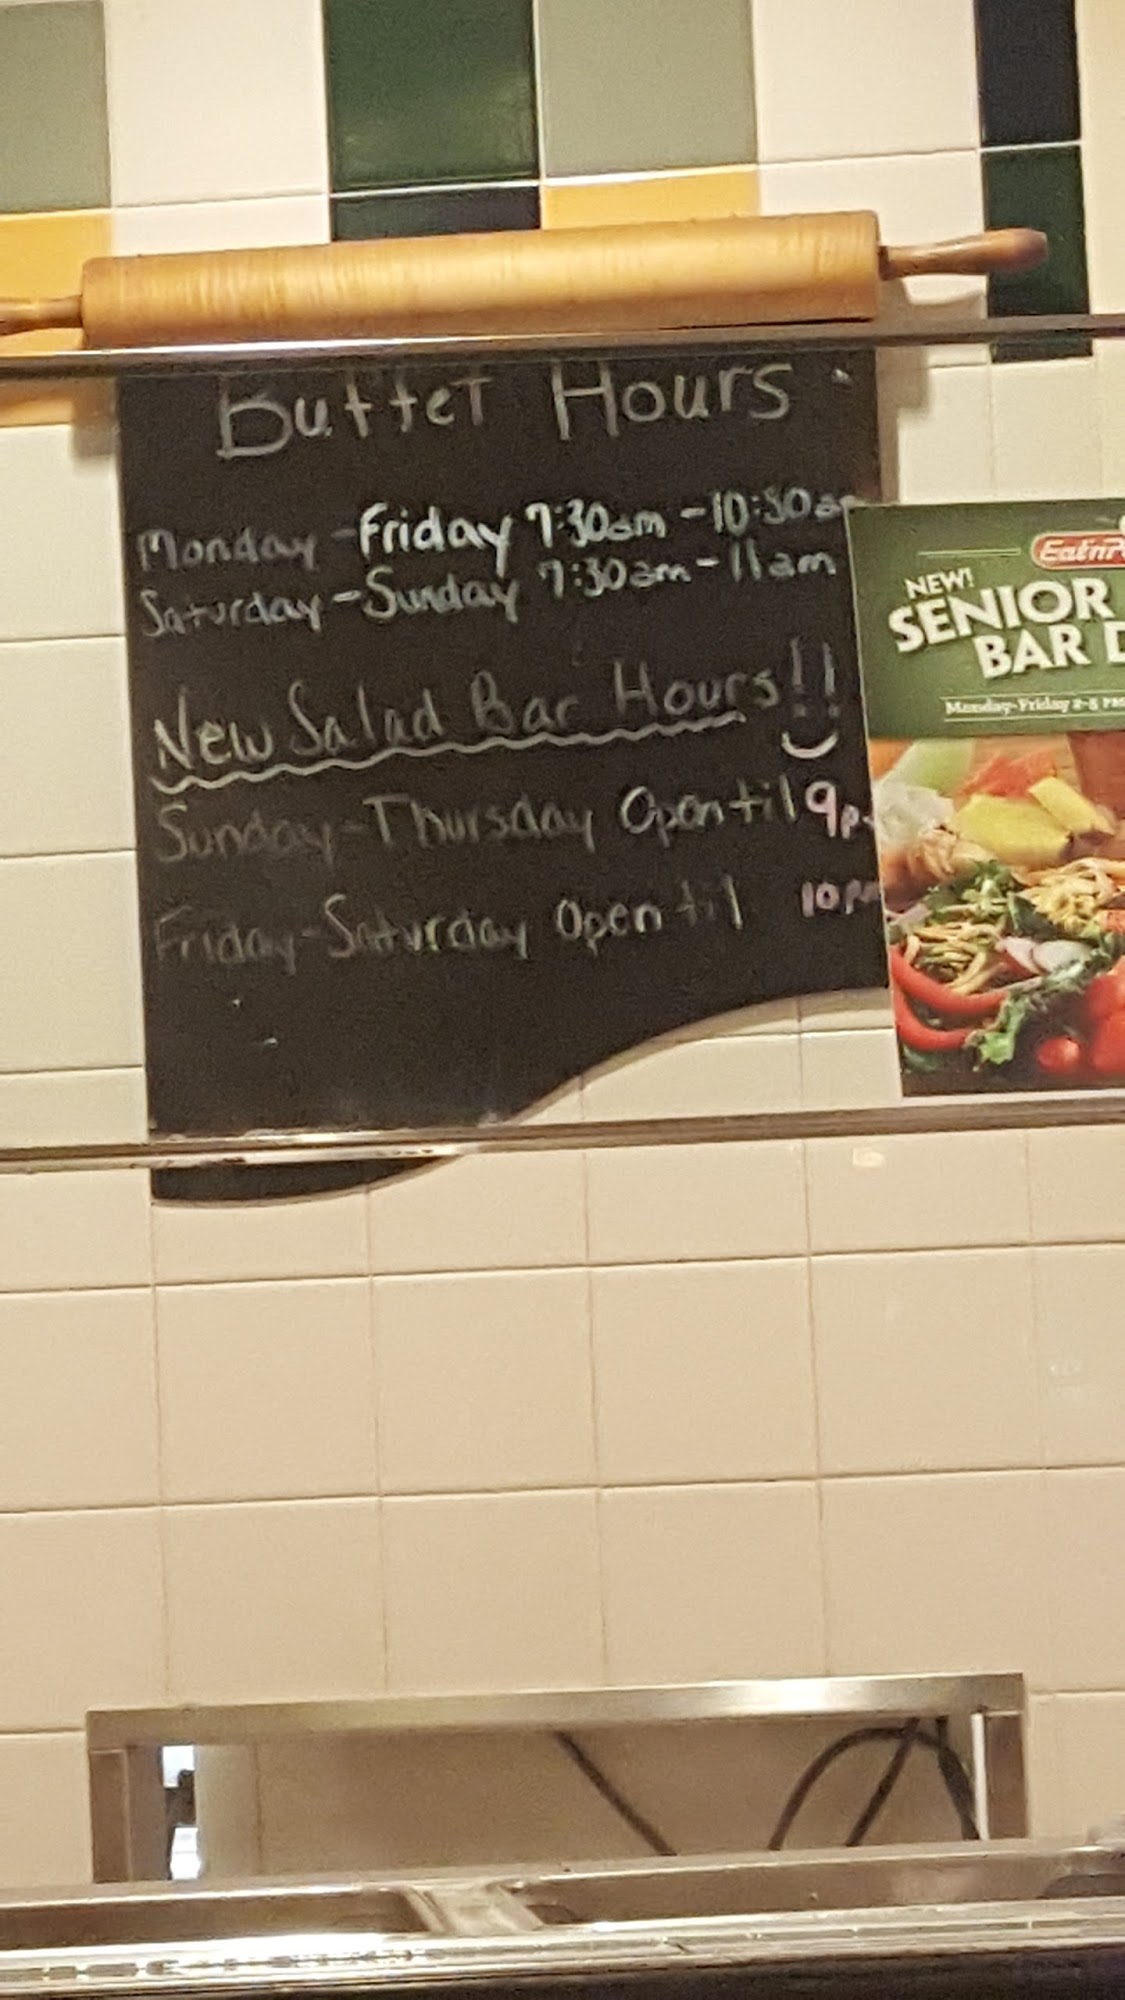 Buffet Hours
Monday - Friday 7:30am - 10:30am
Saturday - Sunday 7:30am - 11am
New Salad Bar Hours!!
Sunday - Thursday Open til 9pm
Friday - Saturday Open til 10pm
Eat'nP
NEW!
SENIOR
BAR D
Monday-Friday 2-5 PM